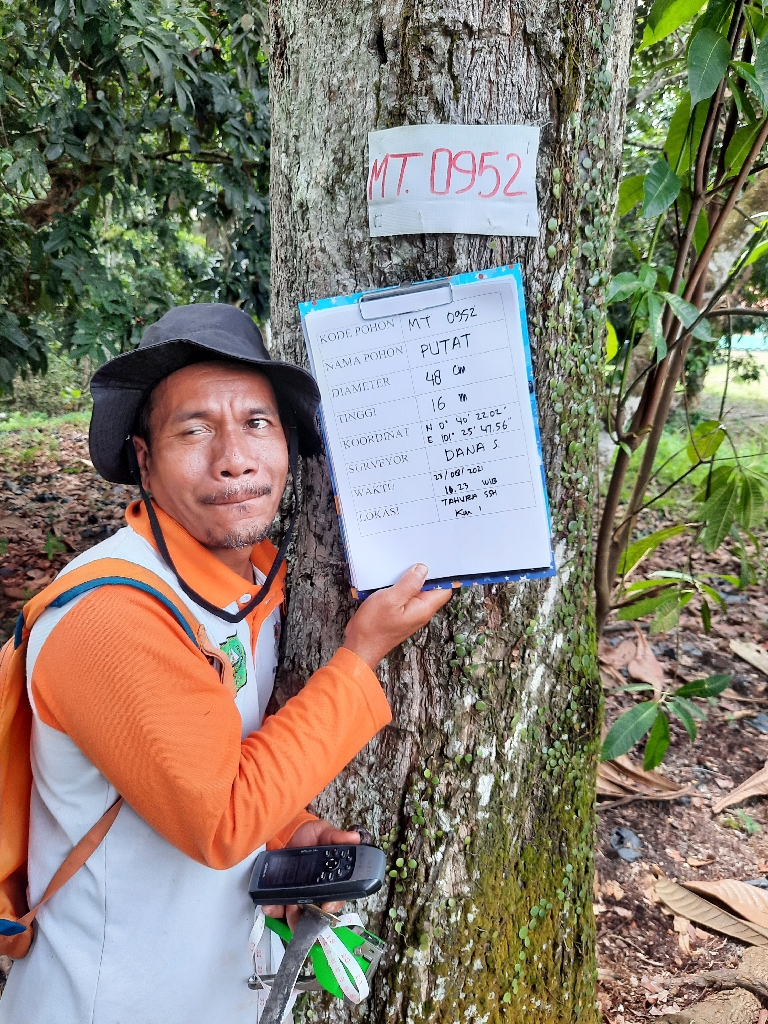 MT. 0952
KODE POHON MT 0952
NAMA POHON PUTAT
DIAMETER 48 Cm
TINGGI 16 m
KOORDINAT N 0° 40' 22.02"
E 101° 25' 47.56"
SURVEYOR DANA S
WAKTU 23/08/2021
10.23 WIB
LOKASI TAHURA SSH
Km 1